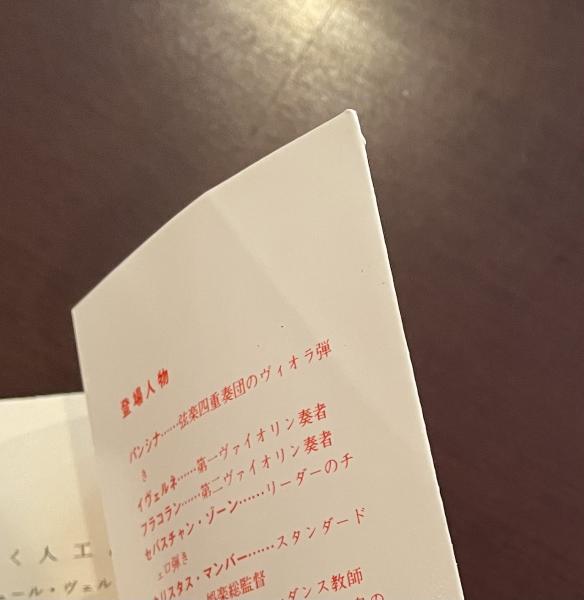 登場人物
パンシナ……弦楽四重奏団のヴィオラ弾
き
イヴェルネ……第一ヴァイオリン奏者
フラコラン……第二ヴァイオリン奏者
セバスチャン・ゾーン……リーダーのチ
ェロ弾き
リスタス・マンバー……スタンダード
娯楽総監督
ダンス教師
の
く人工
ール・ヴェル